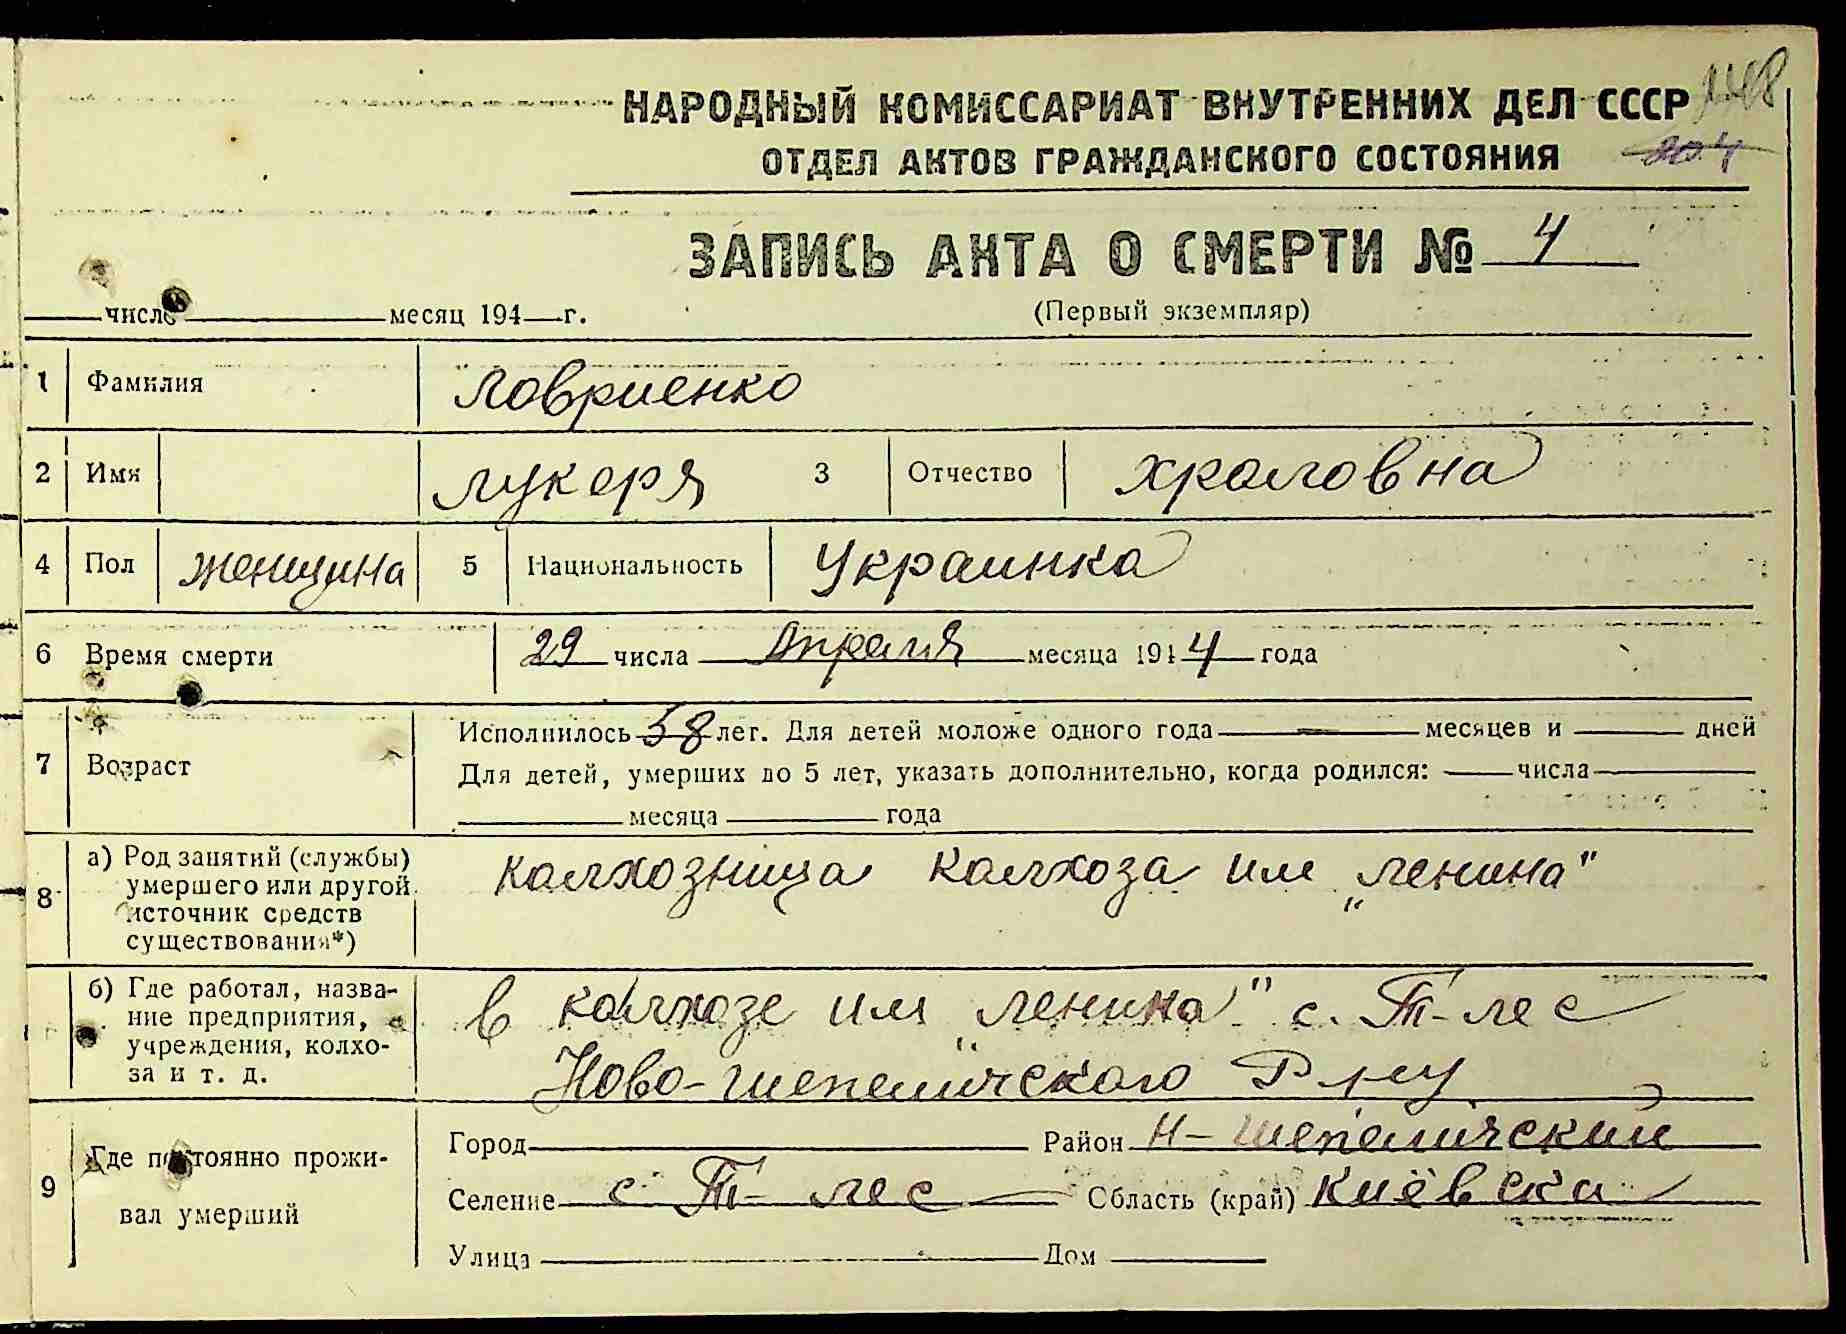 148
НАРОДНЫЙ КОМИССАРИАТ ВНУТРЕННИХ ДЕЛ СССР
ОТДЕЛ АКТОВ ГРАЖДАНСКОГО СОСТОЯНИЯ 204
ЗАПИСЬ АКТА О СМЕРТИ № 4
число месяц 194 г. (Первый экземпляр)
1 Фамилия Ловриенко
2 Имя лукеря 3 Отчество храловна
4 Пол женщина 5 Национальность Украинка
6 Время смерти 29 числа Апреля месяца 1944 года
7 Возраст
Исполнилось 58 лет. Для детей моложе одного года — месяцев и дней
Для детей, умерших до 5 лет, указать дополнительно, когда родился: числа
месяца года
8 а) Род занятий (службы) умершего или другой источник средств существования*)
колхозница колхоза им „ленина"
б) Где работал, название предприятия, учреждения, колхоза и т. д.
в колхозе им „ленина" с. Т-лес
Ново-шепелическаго Р-ну
9 Где постоянно проживал умерший
Город Район Н-шепелический
Селение с Т-лес Область (край) Киёвска
Улица Дом